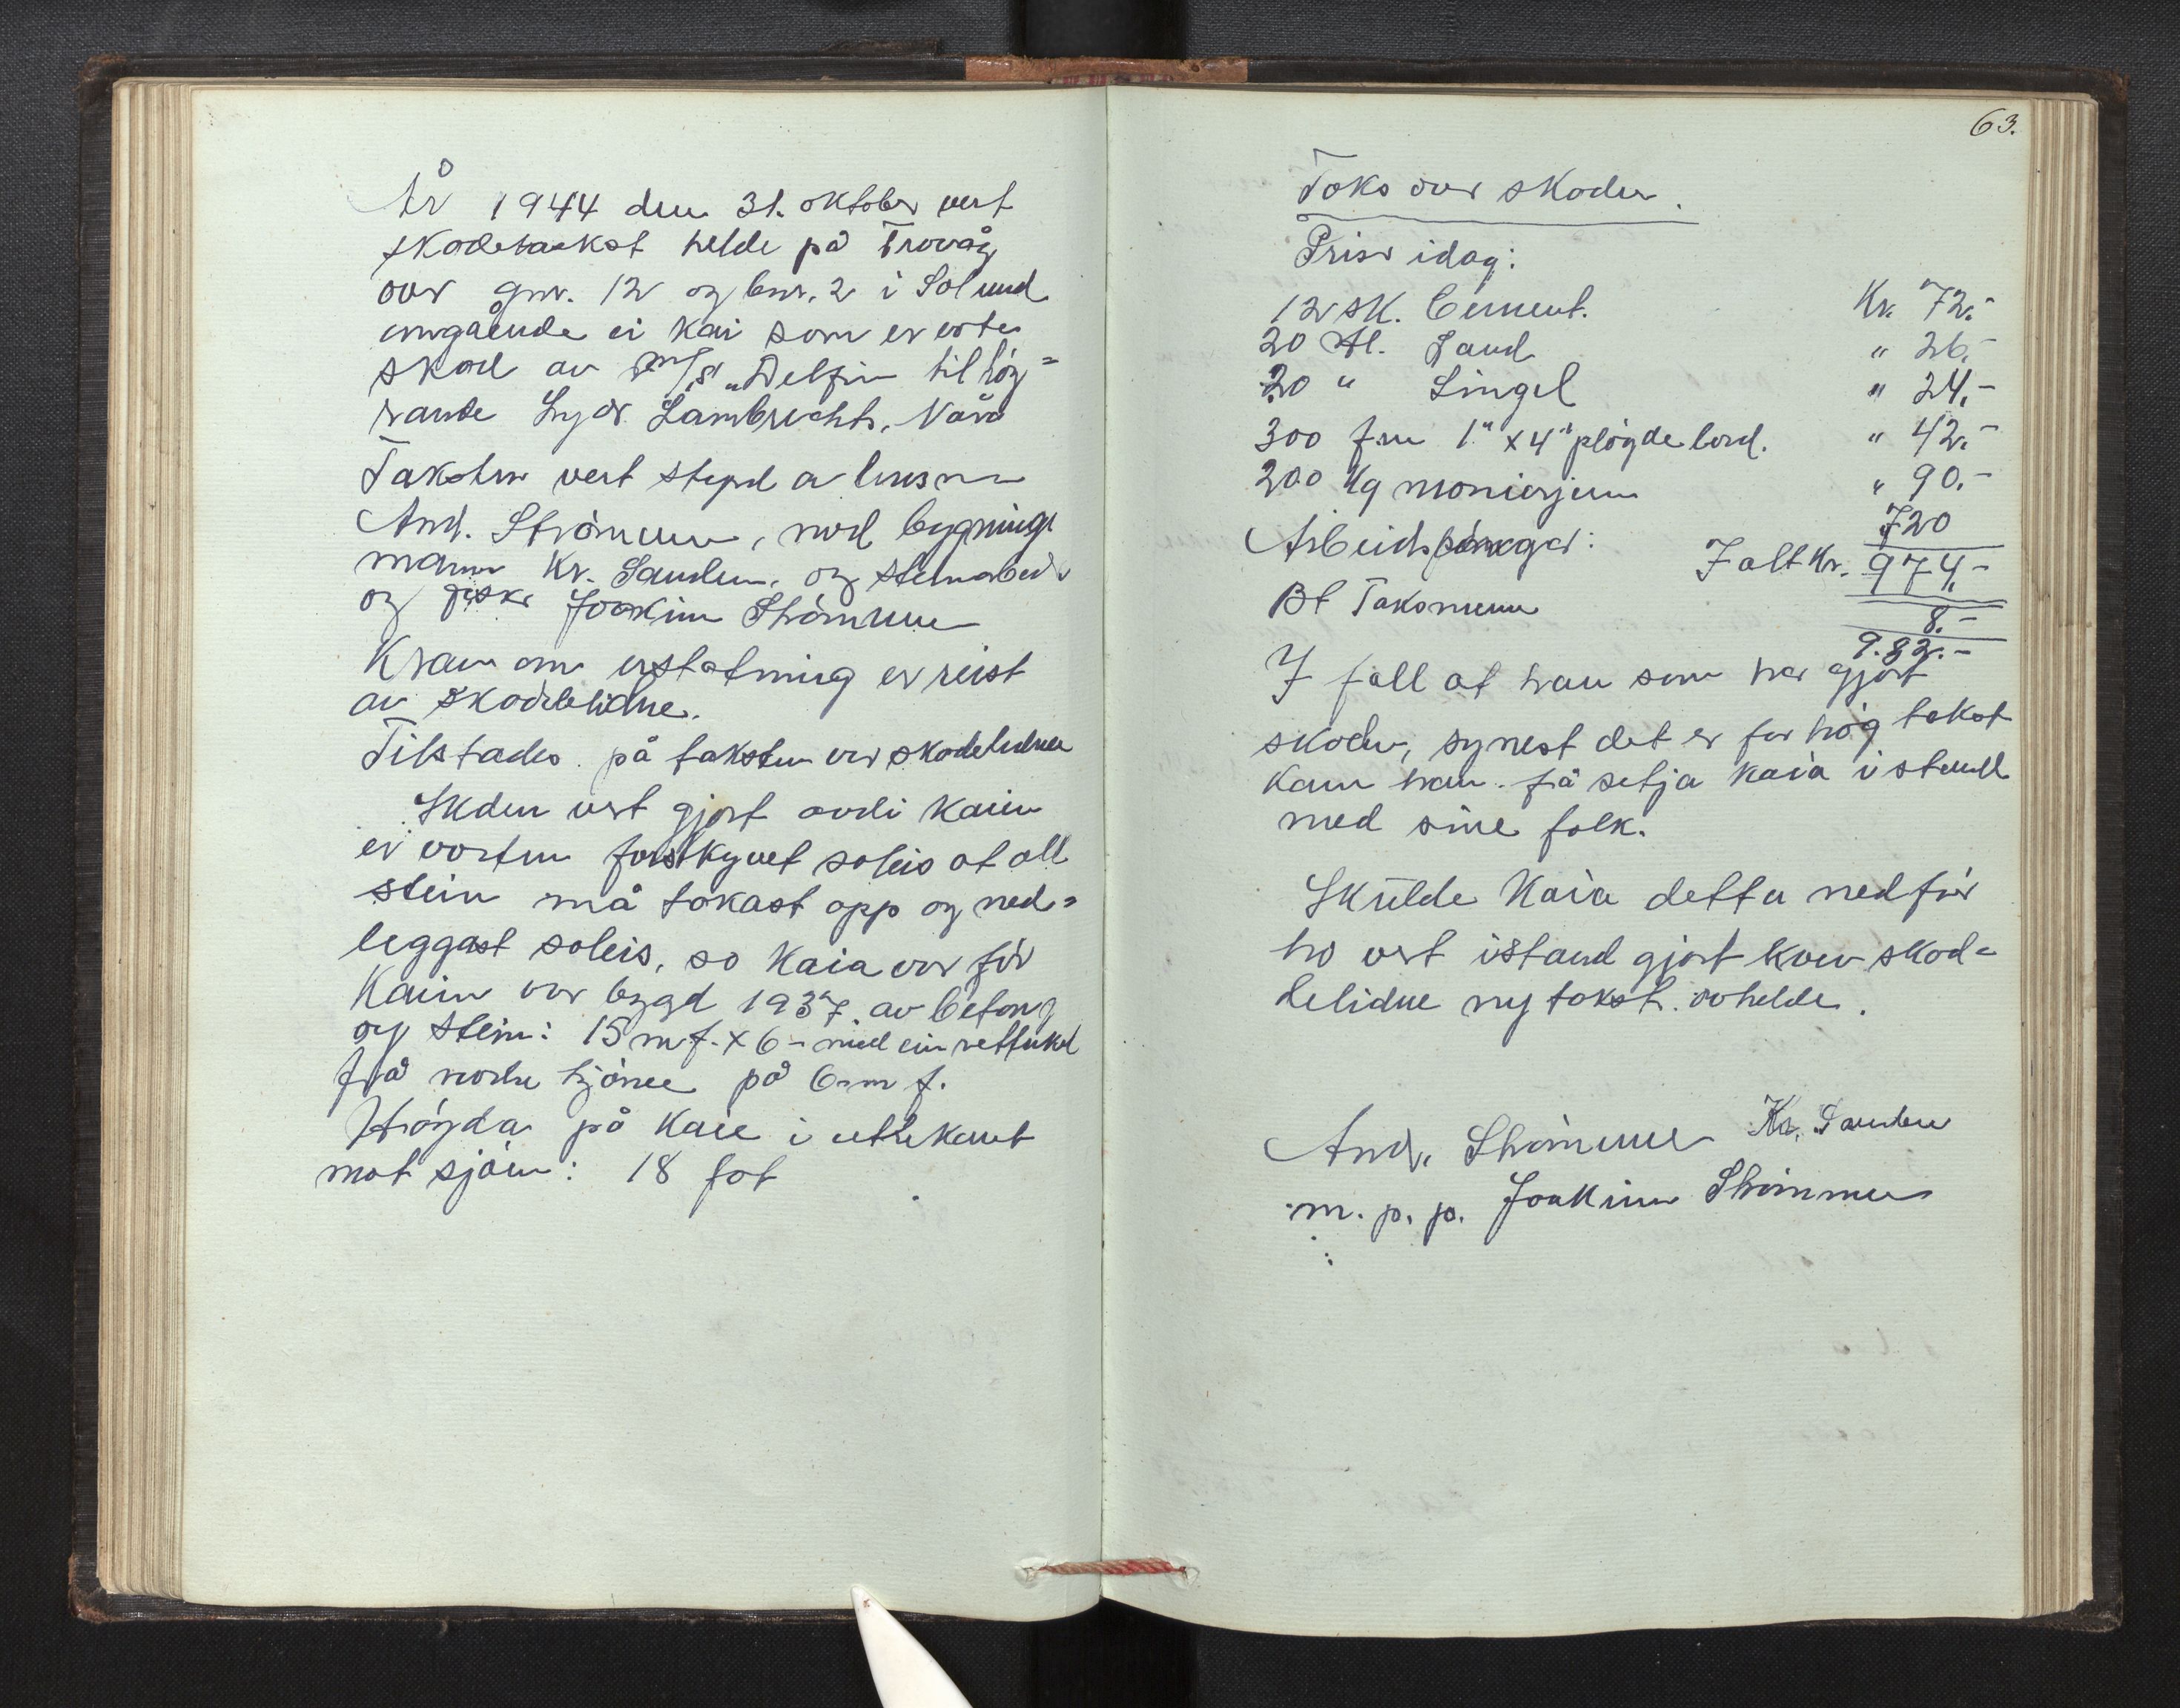 År 1944 den 31. oktober vert
skadetakst helde på Trovåg
over gnr. 12 og bnr. 2 i Solund
omgåande ei kai som er vorte
skad av m/s "Delfin tilhøy=
rande Lydr. Lambrechts, Vårø
Taksten vert styrd av lensm
And. Strömmen, med bygnings
mann Kr. Sanden. og steinarbeidr
og fiskr Joakim Strömmen
Krav om erstatning er reist
av skadelidne.
Tilstades på taksten var skadelidne
Skaden vert gjort avdi kaien
er vorten forskyvet soleis at all
stein må takast opp og ned=
leggast soleis, so kaia var før
Kaien var bygd 1937 av betong
og stein: 15 m f. x 6 - med ein rettvikel
frå nordre hjørne på 6 m f.
Høgda på kaie i ytrekant
mot sjøen: 18 fot
63.
Taks over skaden.
Priser idag:
12 sk. Cement. Kr. 72.-
20 Hl. Sand " 26.-
20 " Singel " 24.-
300 f.m 1" x 4" pløgde bord. " 42.-
200 Kg monierjern " 90.-
Arbeidspengar: 720
I alt Kr. 974.-
Bt Taksmenn 8.-
9.82.-
I fall at han som har gjort
skaden, synest det er for høg takst
kan han få setja kaia i stand
med sine folk.
Skulde kaia detta ned før
ho vert istand gjort krev skad=
delidne ny takst. avhelde.
And. Strömmen Kr. Sanden
m. p. p. Joakim Strömmen